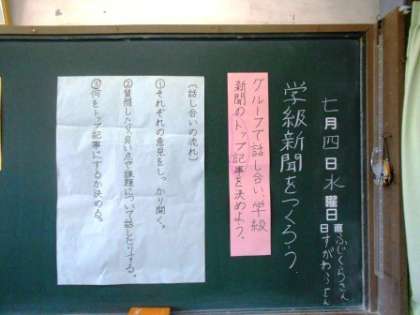 七月四日水曜日
日直
ふじくらさん
すがわらさん
学級新聞をつくろう
グループで話し合い、学級
新聞のトップ記事を決めよう。
(話し合いの流れ)
①それぞれの意見をしっかり聞く。
②質問したり良い点や課題について話したりする。
③何をトップ記事にするか決める。